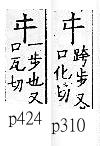 㐄
跨步
口化切
p310
㐄
一步也又
口瓦切
p424